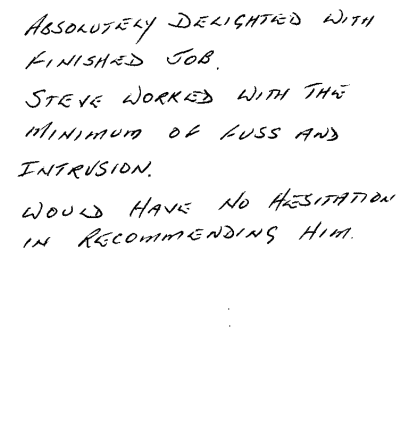 ABSOLUTELY DELIGHTED WITH
FINISHED JOB.
STEVE WORKED WITH THE
MINIMUM OF FUSS AND
INTRUSION.
WOULD HAVE NO HESITATION
IN RECOMMENDING HIM.